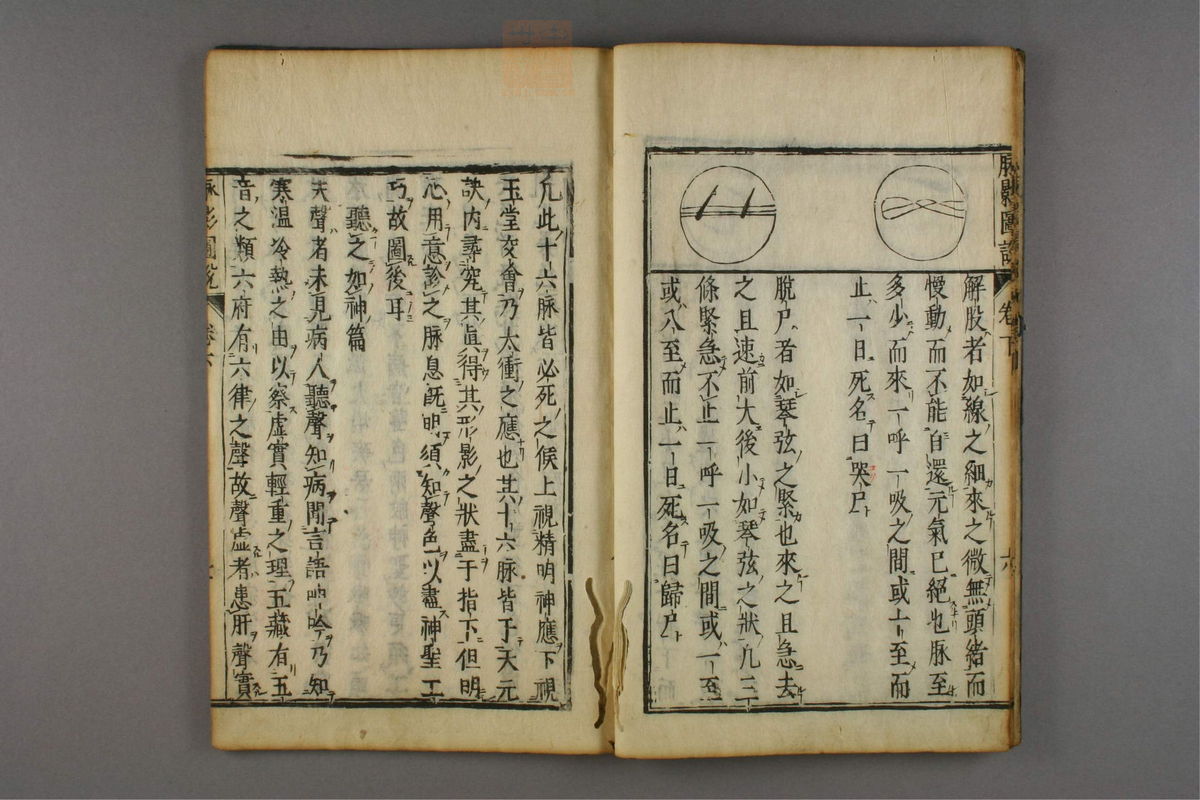 解股者如線之細來之微無頭緒而
慢動而不能自還元氣已絕也脉至
多少而來一呼一吸之間或十至而
止一日死名曰哭尸
脫尸者如琴弦之緊也來之且急去
之且速前大後小如琴弦之狀凡三
條緊急不止一呼一吸之間或一至
或八至而止一日死名曰歸尸
凡此十六脉皆必死之候上視精明神應下視
玉堂交會乃太衝之應也其十六脉皆于天元
訣内尋究其眞得其形影之狀盡于指下但明
心用意診之脉息既明須知聲色以盡神聖工
巧故圖後耳
聽之如神篇
夫聲者未見病人聽聲知病聞言語呻吟乃知
寒温冷熱之由以察虛實輕重之理五藏有五
音之類六府有六律之聲故聲虛者患肝聲實